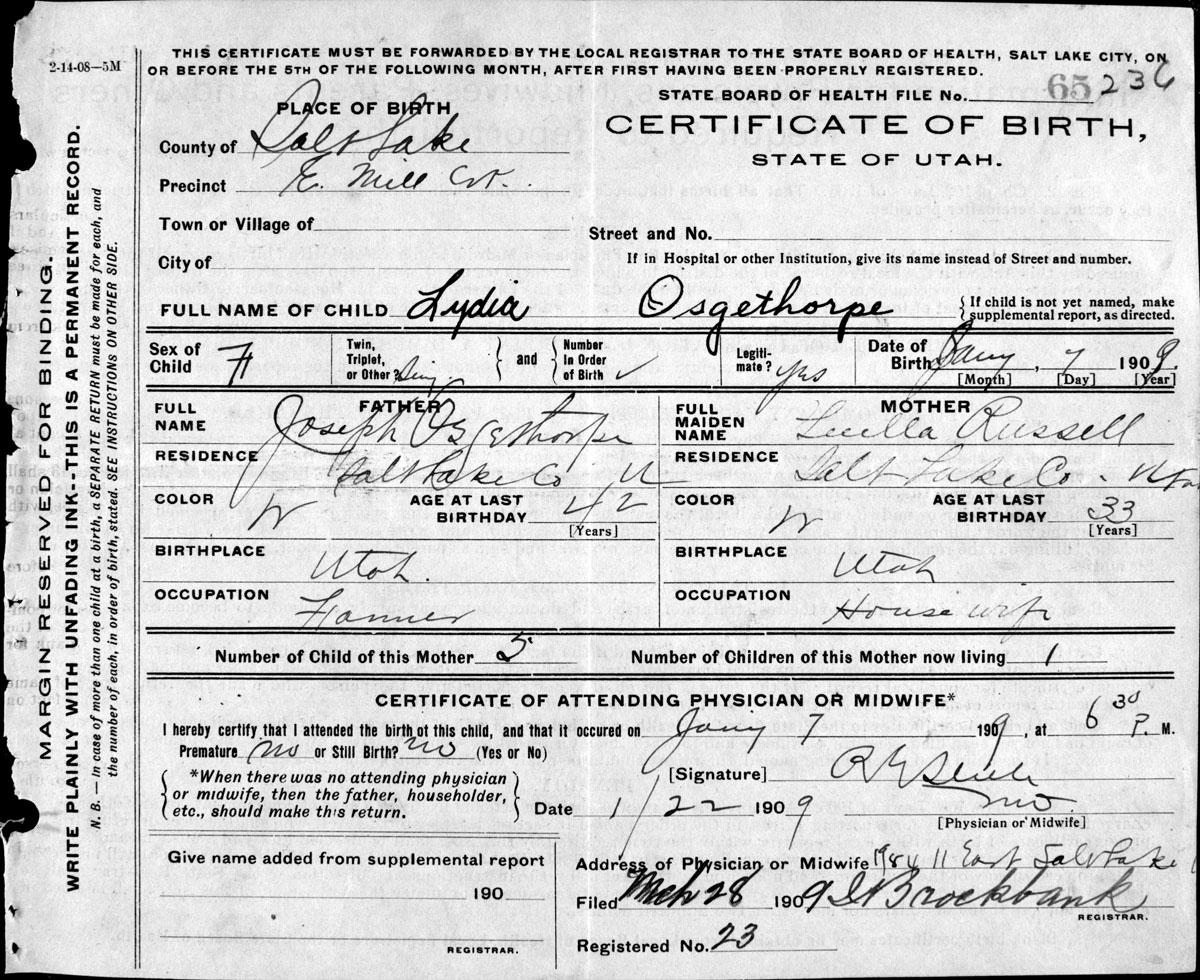 2-14-08—5M
THIS CERTIFICATE MUST BE FORWARDED BY THE LOCAL REGISTRAR TO THE STATE BOARD OF HEALTH, SALT LAKE CITY, ON
OR BEFORE THE 5TH OF THE FOLLOWING MONTH, AFTER FIRST HAVING BEEN PROPERLY REGISTERED.
MARGIN RESERVED FOR BINDING.
WRITE PLAINLY WITH UNFADING INK--THIS IS A PERMANENT RECORD.
N. B.—In case of more than one child at a birth, a SEPARATE RETURN must be made for each, and
the number of each, in order of birth, stated. SEE INSTRUCTIONS ON OTHER SIDE.
STATE BOARD OF HEALTH FILE No. 65 236
CERTIFICATE OF BIRTH,
STATE OF UTAH.
PLACE OF BIRTH
County of Salt Lake
Precinct E. Mill
Town or Village of
Street and No.
City of
If in Hospital or other Institution, give its name instead of Street and number.
FULL NAME OF CHILD Lydia Osgethorpe {If child is not yet named, make
supplemental report, as directed.
Sex of
Child F
Twin,
Triplet,
or Other? Sing } and { Number
in Order
of Birth ✓
Legiti-
mate? Yes
Date of
Birth Jany, 7 1909.
[Month] [Day] [Year]
FATHER
FULL
NAME Joseph Osgethorpe
RESIDENCE Salt Lake Co U
COLOR W
AGE AT LAST
BIRTHDAY 42
[Years]
BIRTHPLACE
Utah.
OCCUPATION
Farmer
MOTHER
FULL
MAIDEN
NAME Luella Russell
RESIDENCE
Salt Lake Co. Utah
COLOR W
AGE AT LAST
BIRTHDAY 33
[Years]
BIRTHPLACE
Utah
OCCUPATION
Housewife
Number of Child of this Mother 5 Number of Children of this Mother now living 1
CERTIFICATE OF ATTENDING PHYSICIAN OR MIDWIFE*
I hereby certify that I attended the birth of this child, and that it occured on Jany 7 1909, at 6 30 P. M.
Premature no or Still Birth? no (Yes or No)
{ *When there was no attending physician
or midwife, then the father, householder,
etc., should make this return. }
[Signature]
MD
Date 1/22 1909
[Physician or Midwife]
Give name added from supplemental report
190
REGISTRAR.
Address of Physician or Midwife 1984 11 East Salt Lake
Filed Mch 28 1909 Brockbank
REGISTRAR.
Registered No. 23